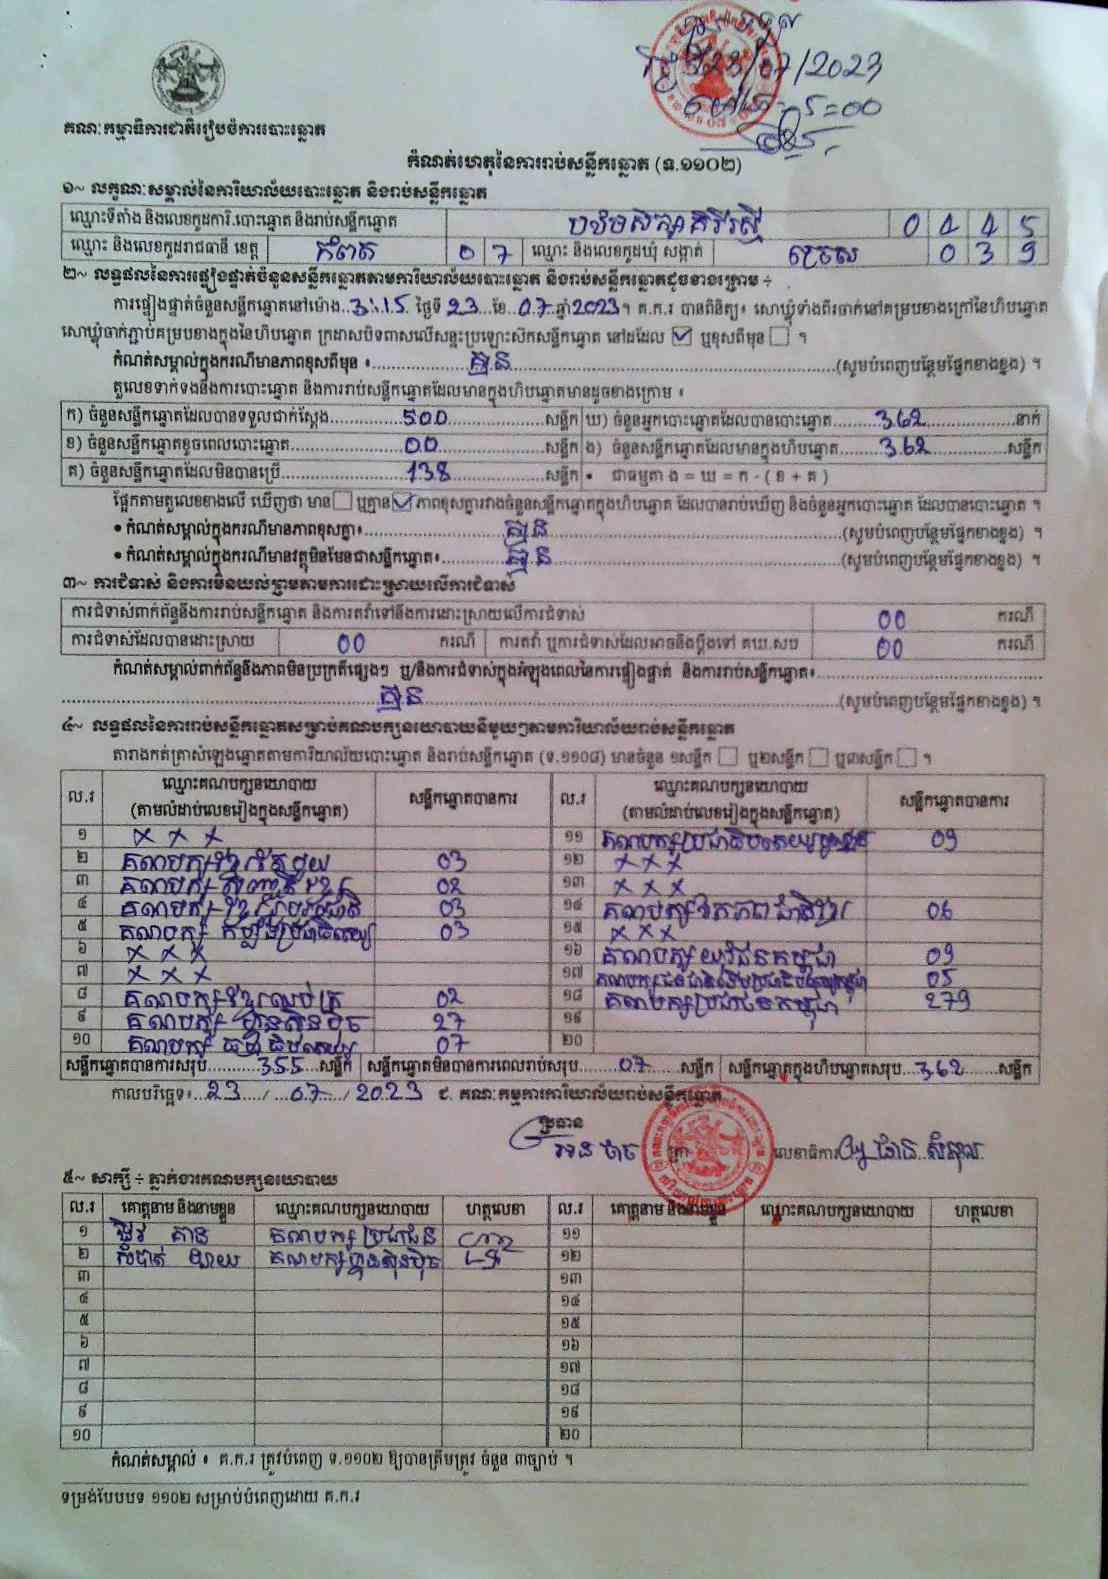 ទី 23/07/2023
5:00
គណៈកម្មាធិការជាតិរៀបចំការបោះឆ្នោត
កំណត់ហេតុនៃការរាប់សន្លឹកឆ្នោត (ទ.១១០២)
១~ លក្ខណៈសម្គាល់នៃការិយាល័យបោះឆ្នោត និងរាប់សន្លឹកឆ្នោត
ឈ្មោះទីតាំង និងលេខកូដការិ.បោះឆ្នោត និងរាប់សន្លឹកឆ្នោត បឋមសិក្សាគិរីរស្មី 0 4 4 5
ឈ្មោះ និងលេខកូដរាជធានី ខេត្ត កំពត 0 7 ឈ្មោះ និងលេខកូដឃុំ សង្កាត់ ច្រេស 0 3 9
២~ លទ្ធផលនៃការផ្ទៀងផ្ទាត់ចំនួនសន្លឹកឆ្នោតតាមការិយាល័យបោះឆ្នោត និងរាប់សន្លឹកឆ្នោតដូចខាងក្រោម ÷
ការផ្ទៀងផ្ទាត់ចំនួនសន្លឹកឆ្នោតនៅម៉ោង 3:15 ថ្ងៃទី 23 ខែ 07 ឆ្នាំ 2023 ។ គ.ក.រ បានពិនិត្យ៖ សោឃ្លុំទាំងពីរចាក់នៅគម្របខាងក្រៅនៃហិបឆ្នោត
សោឃ្លុំចាក់ភ្ជាប់គម្របខាងក្នុងនៃហិបឆ្នោត ក្រដាសបិទពាសលើសន្ទះប្រឡោះស៊កសន្លឹកឆ្នោត នៅដដែល ☑ ឬខុសពីមុន ☐ ។
កំណត់សម្គាល់ក្នុងករណីមានភាពខុសពីមុន ៖ គ្មាន (សូមបំពេញបន្ថែមផ្នែកខាងខ្នង) ។
តួលេខទាក់ទងនឹងការបោះឆ្នោត និងការរាប់សន្លឹកឆ្នោតដែលមានក្នុងហិបឆ្នោតមានដូចខាងក្រោម ៖
ក) ចំនួនសន្លឹកឆ្នោតដែលបានទទួលជាក់ស្តែង 500 សន្លឹក ឃ) ចំនួនអ្នកបោះឆ្នោតដែលបានបោះឆ្នោត 362 នាក់
ខ) ចំនួនសន្លឹកឆ្នោតខូចពេលបោះឆ្នោត 00 សន្លឹក ង) ចំនួនសន្លឹកឆ្នោតដែលមានក្នុងហិបឆ្នោត 362 សន្លឹក
គ) ចំនួនសន្លឹកឆ្នោតដែលមិនបានប្រើ 138 សន្លឹក • ជាធម្មតា ង = ឃ = ក - ( ខ + គ )
ផ្អែកតាមតួលេខខាងលើ ឃើញថា មាន ☐ ឬគ្មាន ☑ ភាពខុសគ្នារវាងចំនួនសន្លឹកឆ្នោតក្នុងហិបឆ្នោត ដែលបានរាប់ឃើញ និងចំនួនអ្នកបោះឆ្នោត ដែលបានបោះឆ្នោត ។
• កំណត់សម្គាល់ក្នុងករណីមានភាពខុសគ្នា៖ គ្មាន (សូមបំពេញបន្ថែមផ្នែកខាងខ្នង) ។
• កំណត់សម្គាល់ក្នុងករណីមានវត្ថុមិនមែនជាសន្លឹកឆ្នោត៖ គ្មាន (សូមបំពេញបន្ថែមផ្នែកខាងខ្នង) ។
៣~ ការជំទាស់ និងការមិនយល់ព្រមតាមការដោះស្រាយលើការជំទាស់
ការជំទាស់ពាក់ព័ន្ធនឹងការរាប់សន្លឹកឆ្នោត និងការតវ៉ាទៅនឹងការដោះស្រាយលើការជំទាស់ 00 ករណី
ការជំទាស់ដែលបានដោះស្រាយ 00 ករណី ការតវ៉ា ឬការជំទាស់ដែលអាចនឹងប្តឹងទៅ គឃ.សប 00 ករណី
កំណត់សម្គាល់ពាក់ព័ន្ធនឹងភាពមិនប្រក្រតីផ្សេងៗ ឬ/និងការជំទាស់ក្នុងអំឡុងពេលនៃការផ្ទៀងផ្ទាត់ និងការរាប់សន្លឹកឆ្នោត៖
គ្មាន (សូមបំពេញបន្ថែមផ្នែកខាងខ្នង) ។
៤~ លទ្ធផលនៃការរាប់សន្លឹកឆ្នោតសម្រាប់គណបក្សនយោបាយនីមួយៗតាមការិយាល័យរាប់សន្លឹកឆ្នោត
តារាងកត់ត្រាសំឡេងឆ្នោតតាមការិយាល័យបោះឆ្នោត និងរាប់សន្លឹកឆ្នោត (ទ.១១០៨) មានចំនួន ១សន្លឹក ☐ ឬ២សន្លឹក ☐ ឬ៣សន្លឹក ☐ ។
ល.រ ឈ្មោះគណបក្សនយោបាយ (តាមលំដាប់លេខរៀងក្នុងសន្លឹកឆ្នោត) សន្លឹកឆ្នោតបានការ ល.រ ឈ្មោះគណបក្សនយោបាយ (តាមលំដាប់លេខរៀងក្នុងសន្លឹកឆ្នោត) សន្លឹកឆ្នោតបានការ
១ x x x ១១ គណបក្សប្រជាធិបតេយ្យមូលដ្ឋាន 09
២ គណបក្សខ្មែរតែមួយ 03 ១២ x x x
៣ គណបក្ស 02 ១៣ x x x
៤ គណបក្សខ្មែររួបរួមជាតិ 03 ១៤ គណបក្សឯកភាពជាតិខ្មែរ 06
៥ គណបក្ស កម្លាំងប្រជាធិបតេយ្យ 03 ១៥ x x x
៦ x x x ១៦ គណបក្សយុវជនកម្ពុជា 09
៧ x x x ១៧ 05
៨ គណបក្សខ្មែរឈប់ក្រ 02 ១៨ គណបក្សប្រជាជនកម្ពុជា 279
៩ គណបក្ស ហ្វ៊ុនស៊ិនប៉ិច 27 ១៩
១០ គណបក្ស ធម្មាធិបតេយ្យ 07 ២០
សន្លឹកឆ្នោតបានការសរុប 355 សន្លឹក សន្លឹកឆ្នោតមិនបានការពេលរាប់សរុប 07 សន្លឹក សន្លឹកឆ្នោតក្នុងហិបឆ្នោតសរុប 362 សន្លឹក
កាលបរិច្ឆេទ៖ 23 / 07 / 2023 ជ. គណៈកម្មការការិយាល័យរាប់សន្លឹកឆ្នោត
ប្រធាន
លេខាធិការ
៥~ សាក្សី ÷ ភ្នាក់ងារគណបក្សនយោបាយ
ល.រ គោត្តនាម និងនាមខ្លួន ឈ្មោះគណបក្សនយោបាយ ហត្ថលេខា ល.រ គោត្តនាម និងនាមខ្លួន ឈ្មោះគណបក្សនយោបាយ ហត្ថលេខា
១ គណបក្ស ប្រជាជន ១១
២ គណបក្សហ្វ៊ុនស៊ិនប៉ិច ១២
៣ ១៣
៤ ១៤
៥ ១៥
៦ ១៦
៧ ១៧
៨ ១៨
៩ ១៩
១០ ២០
កំណត់សម្គាល់ ៖ គ.ក.រ ត្រូវបំពេញ ទ.១១០២ ឱ្យបានត្រឹមត្រូវ ចំនួន ៣ច្បាប់ ។
ទម្រង់បែបបទ ១១០២ សម្រាប់បំពេញដោយ គ.ក.រ